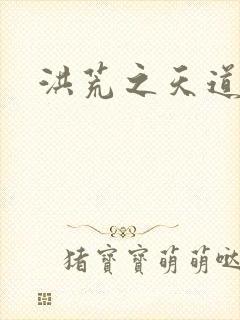 洪荒之天道
猪寶寶萌萌哒